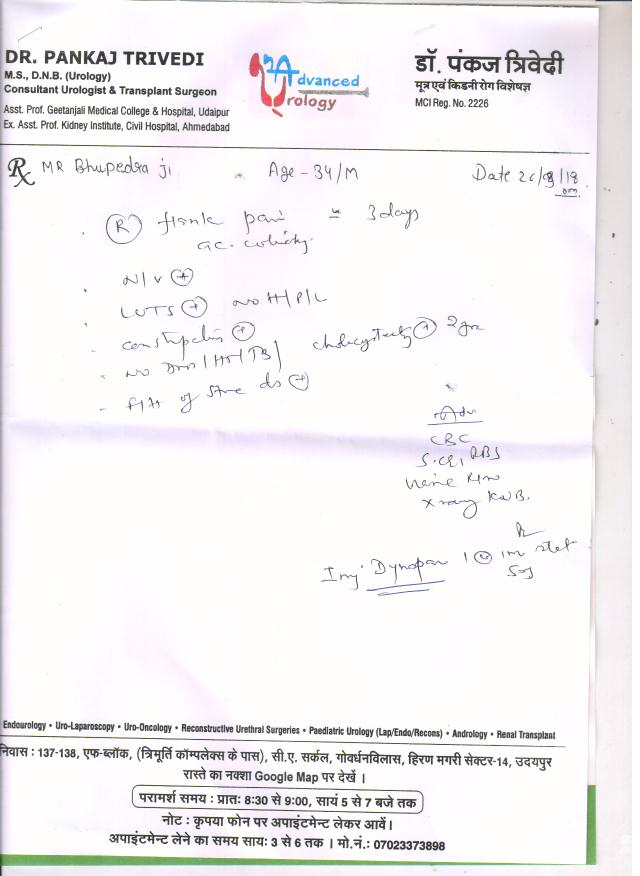 DR. PANKAJ TRIVEDI
M.S., D.N.B. (Urology)
Consultant Urologist & Transplant Surgeon
Asst. Prof. Geetanjali Medical College & Hospital, Udaipur
Ex. Asst. Prof. Kidney Institute, Civil Hospital, Ahmedabad
Advanced
Urology
डॉ. पंकज त्रिवेदी
मूत्र एवं किडनी रोग विशेषज्ञ
MCI Reg. No. 2226
Rx MR Bhupedra ji Age - 34/M Date
(R) flank pain 3 days
ac. colicky.
N/V (+)
LUTS (+) NO H/P/L
constipation (+)
NO DM / HT / TB
of stone ds (+)
Adv
CBC
S.Cr, RBS
Urine R/m
X ray KUB.
Inj. Dynapar 1 im stat
Endourology • Uro-Laparoscopy • Uro-Oncology • Reconstructive Urethral Surgeries • Paediatric Urology (Lap/Endo/Recons) • Andrology • Renal Transplant
निवास : 137-138, एफ-ब्लॉक, (त्रिमूर्ति कॉम्पलेक्स के पास), सी.ए. सर्कल, गोवर्धनविलास, हिरण मगरी सेक्टर-14, उदयपुर
रास्ते का नक्शा Google Map पर देखें ।
परामर्श समय : प्रातः 8:30 से 9:00, सायं 5 से 7 बजे तक
नोट : कृपया फोन पर अपाइंटमेन्ट लेकर आवें।
अपाइंटमेन्ट लेने का समय सायः 3 से 6 तक । मो.नं.: 07023373898